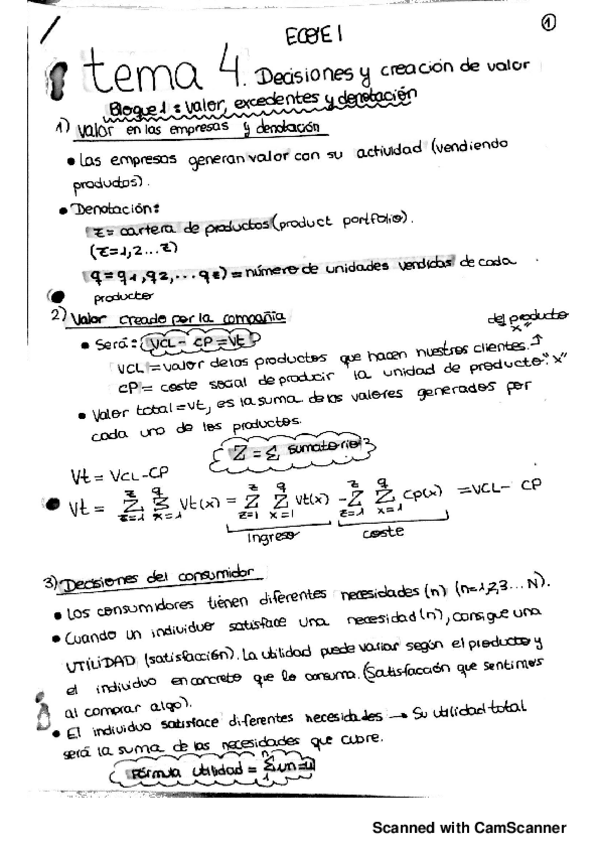 ECOE I
1
tema 4. Decisiones y creación de valor
Bloque 1: valor, excedentes y denotación
1) valor en las empresas y denotación
• Las empresas generan valor con su actividad (vendiendo
productos).
• Denotación:
z = cartera de productos (product portfolio).
(z=1,2...z)
q = q1, q2, ... qz) = número de unidades vendidas de cada
producto
2) Valor creado por la compañía
• Será: VCL - CP = Vt
del producto
"x"
VCL = valor de los productos que hacen nuestros clientes. ↑
CP = coste social de producir la unidad de producto "x"
• Valor total = Vt, es la suma de los valores generados por
cada uno de los productos.
Z = Σ sumatorio
Vt = VCL - CP
• Vt = Σ(z=1, z) Σ(x=1, q) Vt(x) = Σ(z=1, z) Σ(x=1, q) Vt(x) - Σ(z=1, z) Σ(x=1, q) Cp(x) = VCL - CP
Ingreso coste
3) Decisiones del consumidor
• Los consumidores tienen diferentes necesidades (n) (n=1,2,3...N).
• Cuando un individuo satisface una necesidad (n), consigue una
UTILIDAD (satisfacción). La utilidad puede variar según el producto y
el individuo en concreto que lo consuma. (Satisfacción que sentimos
al comprar algo).
• El individuo satisface diferentes necesidades → Su utilidad total
será la suma de las necesidades que cubre.
Fórmula utilidad = Σ un = u
Scanned with CamScanner